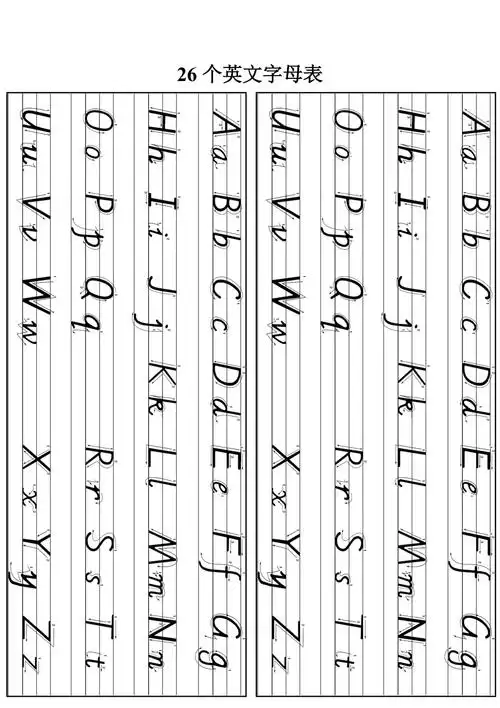 26个英文字母表
Aa Bb Cc Dd Ee Ff Gg
Hh Ii Jj Kk Ll Mm Nn
Oo Pp Qq Rr Ss Tt
Uu Vv Ww Xx Yy Zz
Aa Bb Cc Dd Ee Ff Gg
Hh Ii Jj Kk Ll Mm Nn
Oo Pp Qq Rr Ss Tt
Uu Vv Ww Xx Yy Zz